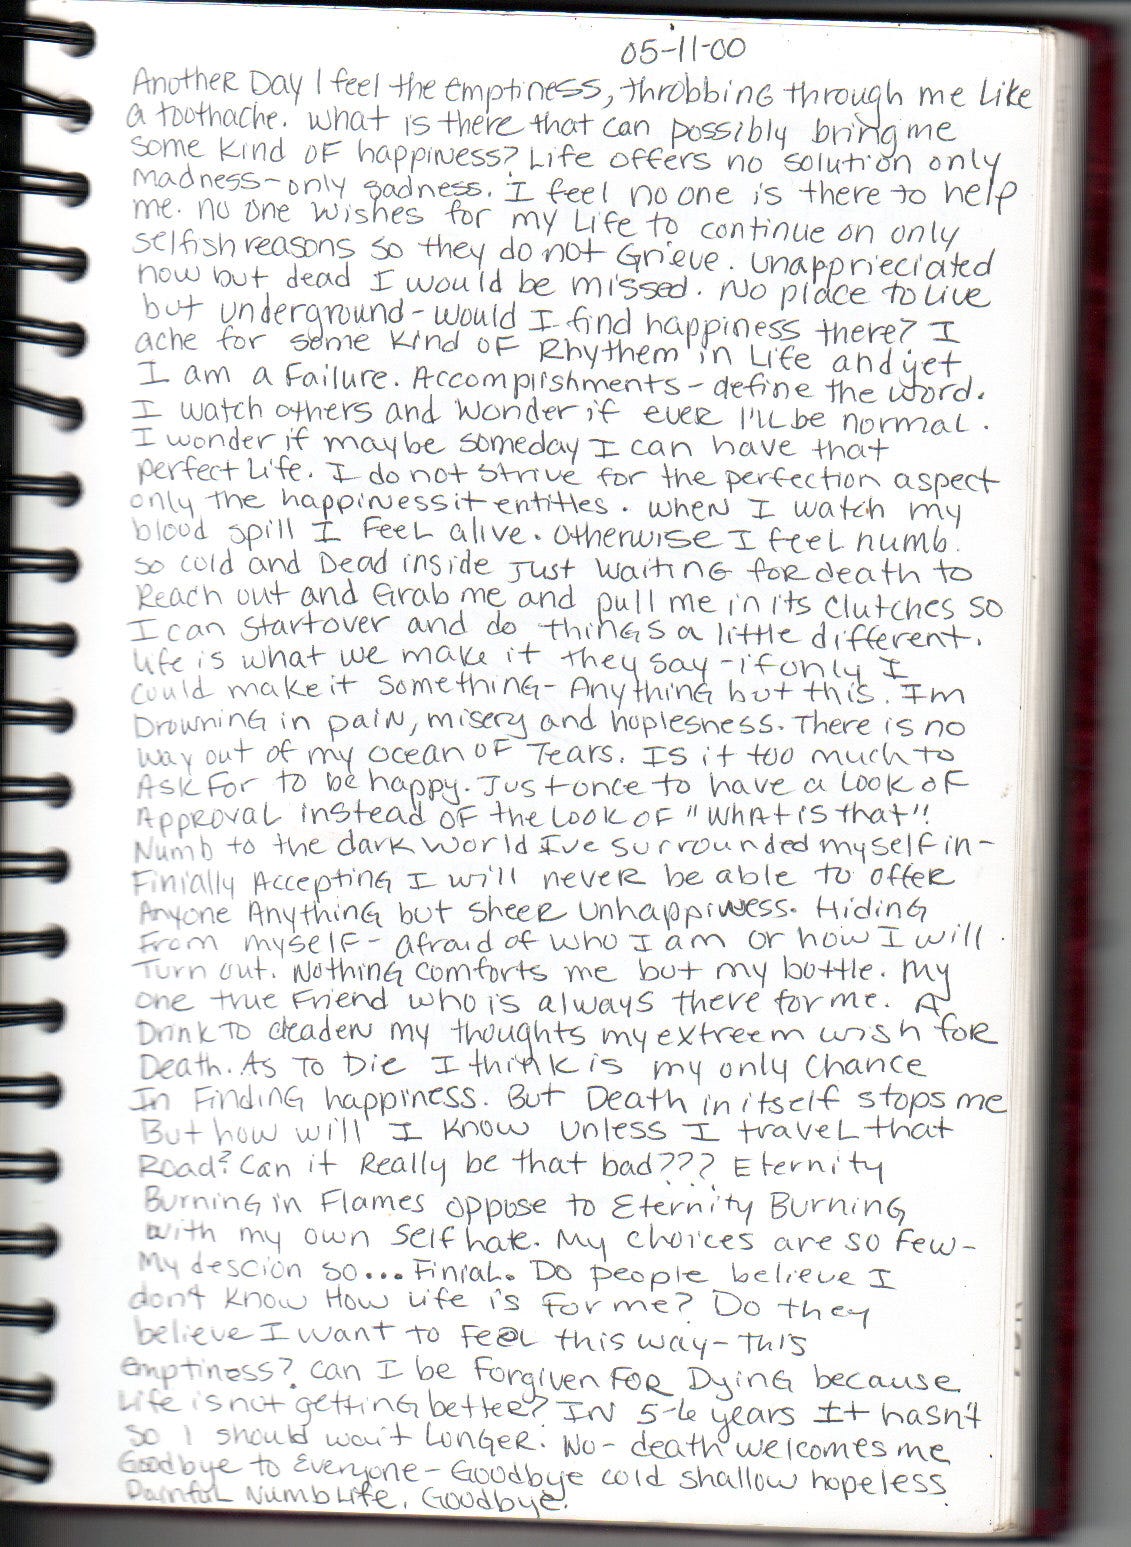 05-11-00
Another Day I feel the emptiness, throbbing through me like
a toothache. What is there that can possibly bring me
some kind of happiness? Life offers no solution only
madness - only sadness. I feel no one is there to help
me. no one wishes for my life to continue on only
selfish reasons so they do not Grieve. Unapprieciated
now but dead I would be missed. No place to live
but underground - would I find happiness there? I
ache for some kind of Rhythem in life and yet
I am a Failure. Accomplishments - define the word.
I watch others and wonder if ever I'll be normal.
I wonder if maybe someday I can have that
perfect life. I do not strive for the perfection aspect
only the happiness it entitles. When I watch my
blood spill I feel alive. Otherwise I feel numb.
so cold and Dead inside just waiting for death to
Reach out and Grab me and pull me in its clutches so
I can start over and do things a little different.
Life is what we make it they say - if only I
could make it something - Anything but this. Im
Drowning in pain, misery and hoplesness. There is no
way out of my ocean of Tears. Is it too much to
Ask for to be happy. Just once to have a look of
Approval instead of the look of "What is that"!
Numb to the dark world Ive surrounded myself in -
Finially Accepting I will never be able to offer
Anyone Anything but sheer unhappiness. Hiding
From myself - afraid of who I am or how I will
Turn out. Nothing comforts me but my bottle. My
one true Friend who is always there for me. A
Drink to deaden my thoughts my extreem wish for
Death. As To Die I think is my only chance
In Finding happiness. But Death in itself stops me
But how will I know unless I travel that
Road? Can it Really be that bad??? Eternity
Burning in Flames oppose to Eternity Burning
with my own Self hate. My choices are so few -
My descion so... Finial. Do people believe I
don't know How life is for me? Do they
believe I want to feel this way - this
emptiness? Can I be forgiven for Dying because
Life is not getting better? IN 5-6 years It hasn't
so I should wait Longer. No - death welcomes me
Goodbye to Everyone - Goodbye cold shallow hopeless
Painful Numb Life, Goodbye.